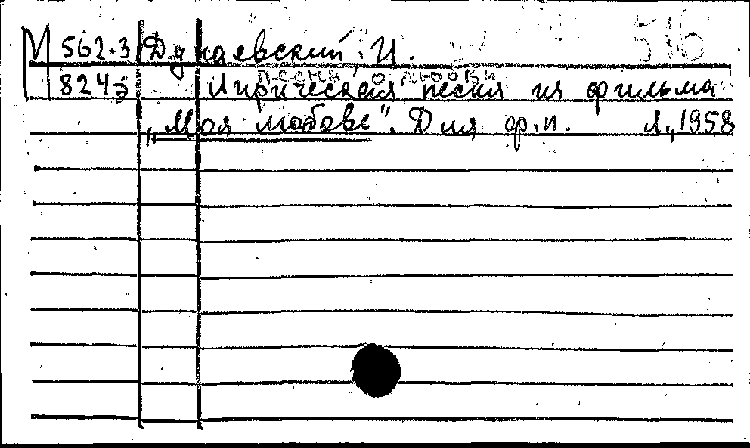 М 562.3 Дунаевский, И. 516
песнь о любви
8243 Лирическая песня из фильма
„Моя любовь“. Для ф.п. Л., 1958